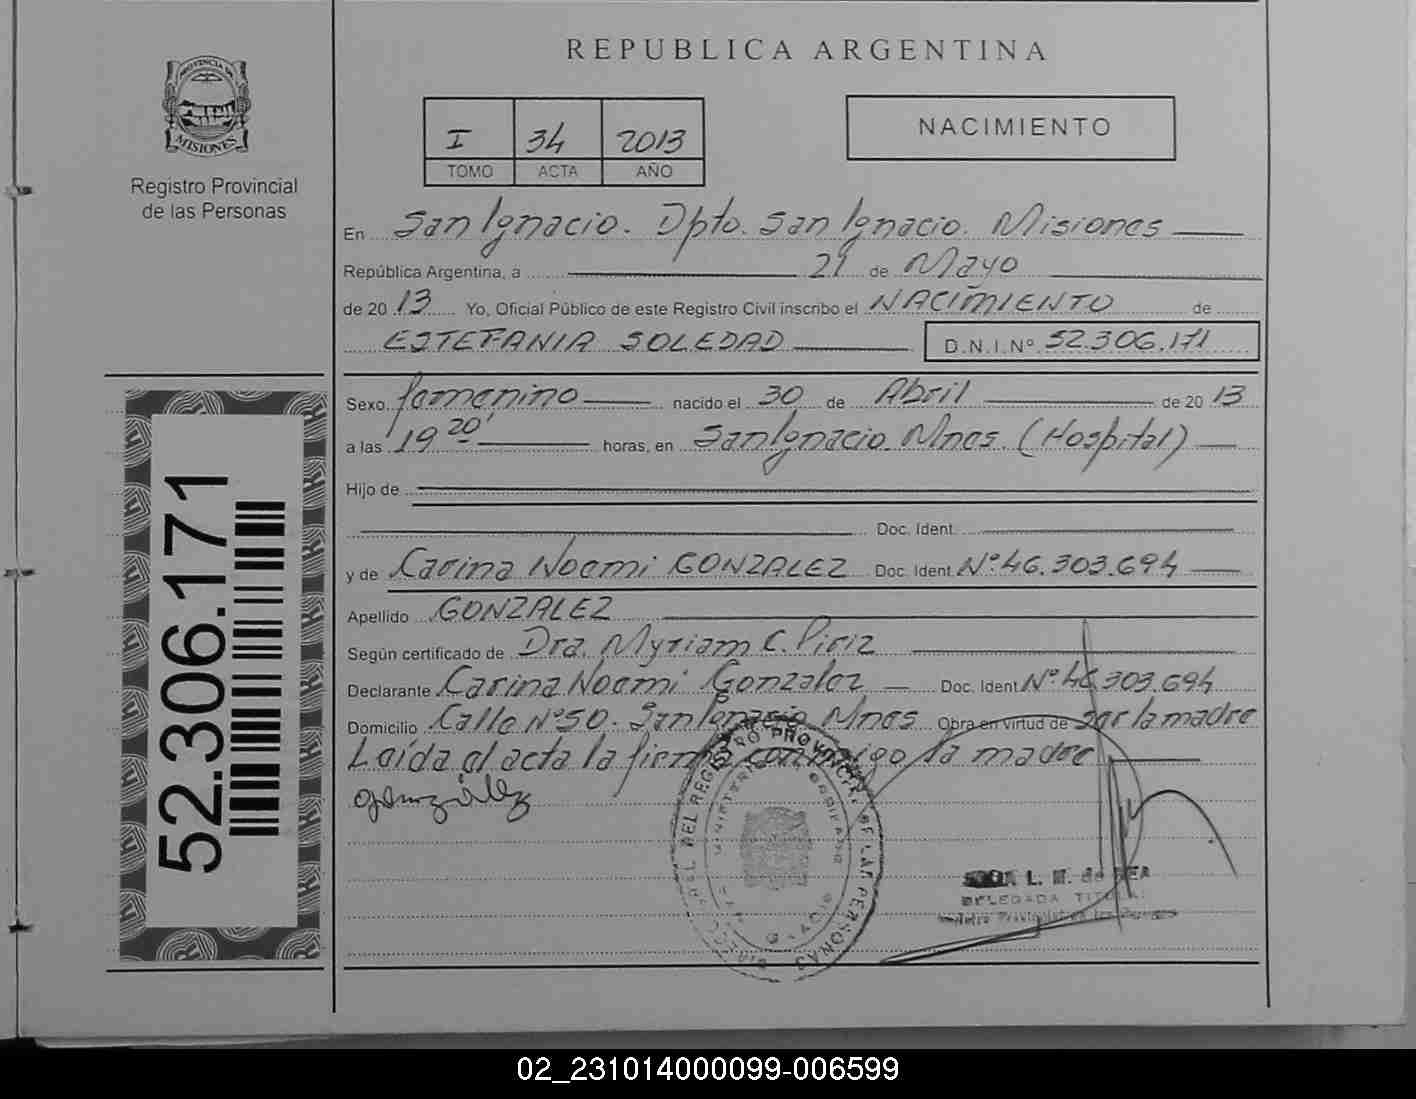 REPUBLICA ARGENTINA
PROVINCIA DE
MISIONES
Registro Provincial
de las Personas
I 34 2013
TOMO ACTA AÑO
NACIMIENTO
En San Ignacio. Dpto. San Ignacio. Misiones
República Argentina, a 21 de Mayo
de 20 13 Yo, Oficial Público de este Registro Civil inscribo el NACIMIENTO de
ESTEFANIA SOLEDAD D.N.I.Nº 52.306.171
Sexo femenino nacido el 30 de Abril de 20 13
a las 19 20' horas, en San Ignacio Mnes. (Hospital)
Hijo de
Doc. Ident.
y de Carina Noemi GONZALEZ Doc. Ident Nº 46.303.694
Apellido GONZALEZ
Según certificado de Dra. Myriam C. Piriz
Declarante Carina Noemi Gonzalez Doc. Ident Nº 46.303.694
Domicilio Calle Nº 50. San Ignacio Mnes Obra en virtud de ser la madre
Leída el acta la firma conmigo la madre
gonzález
52.306.171
L. M. de
DELEGADA TITULAR
02_231014000099-006599